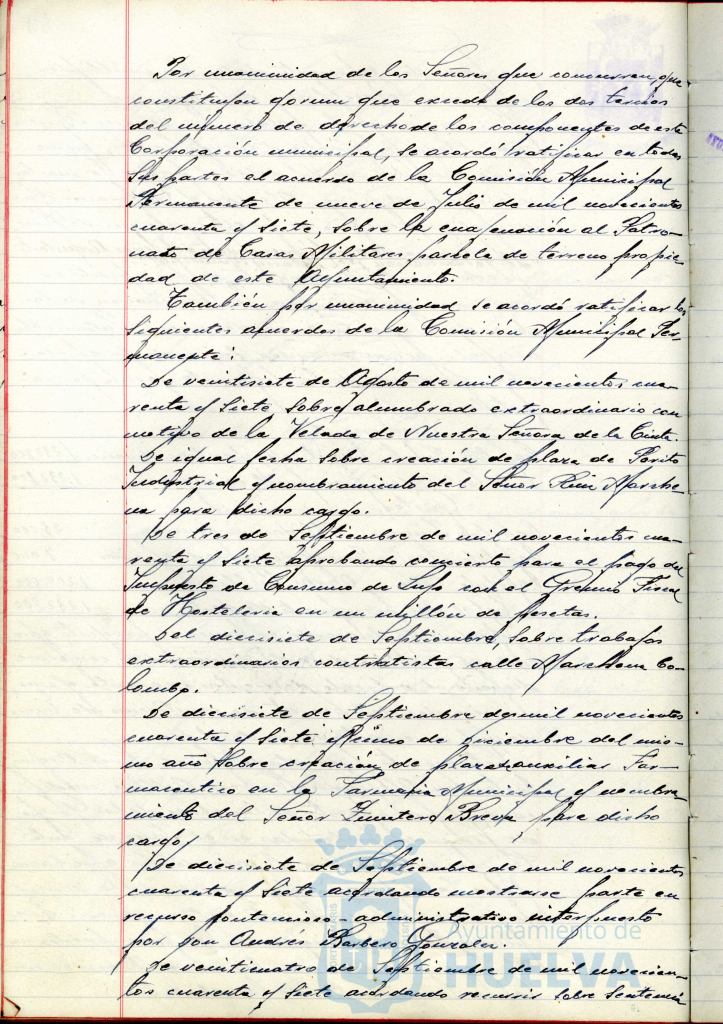 Por unanimidad de los Señores que concurren, que
constituyen qorum que excede de los dos tercios
del número de derecho de los componentes de esta
Corporación municipal, se acordó ratificar en todas
sus partes el acuerdo de la Comisión Municipal
Permanente de nueve de Julio de mil novecientos
cuarenta y siete, sobre la enagenación al Patro-
nato de Casas Militares parcela de terreno propie-
dad de este Ayuntamiento.
También por unanimidad se acordó ratificar los
siguientes acuerdos de la Comisión Municipal Per-
manente:
De veintisiete de Agosto de mil novecientos cua-
renta y siete, sobre alumbrado extraordinario con
motivo de la Velada de Nuestra Señora de la Cinta.
De igual fecha sobre creación de plaza de Perito
Industrial y nombramiento del Señor Ruiz Marche-
na para dicho cargo.
De tres de Septiembre de mil novecientos cua-
renta y siete aprobando concierto para el pago del
Impuesto de Consumo de Lujo con el Gremio Fiscal
de Hosteleria en un millón de pesetas.
Del diecisiete de Septiembre, sobre trabajos
extraordinarios contratistas calle Marchena Co-
lombo.
De diecisiete de Septiembre de mil novecientos
cuarenta y siete y de Diciembre del mis-
mo año sobre creación de plaza auxiliar Far-
maceutico en la Farmacia Municipal y nombra-
miento del Señor Breva para dicho
cargo.
De diecisiete de Septiembre de mil novecientos
cuarenta y siete acordando mostrarse parte en
recurso contencioso-administrativo interpuesto
por Don Andrés Barbero Gonzalez.
De veinticuatro de Septiembre de mil novecien-
tos cuarenta y siete acordando recurrir sobre sentencia
Ayuntamiento de
HUELVA